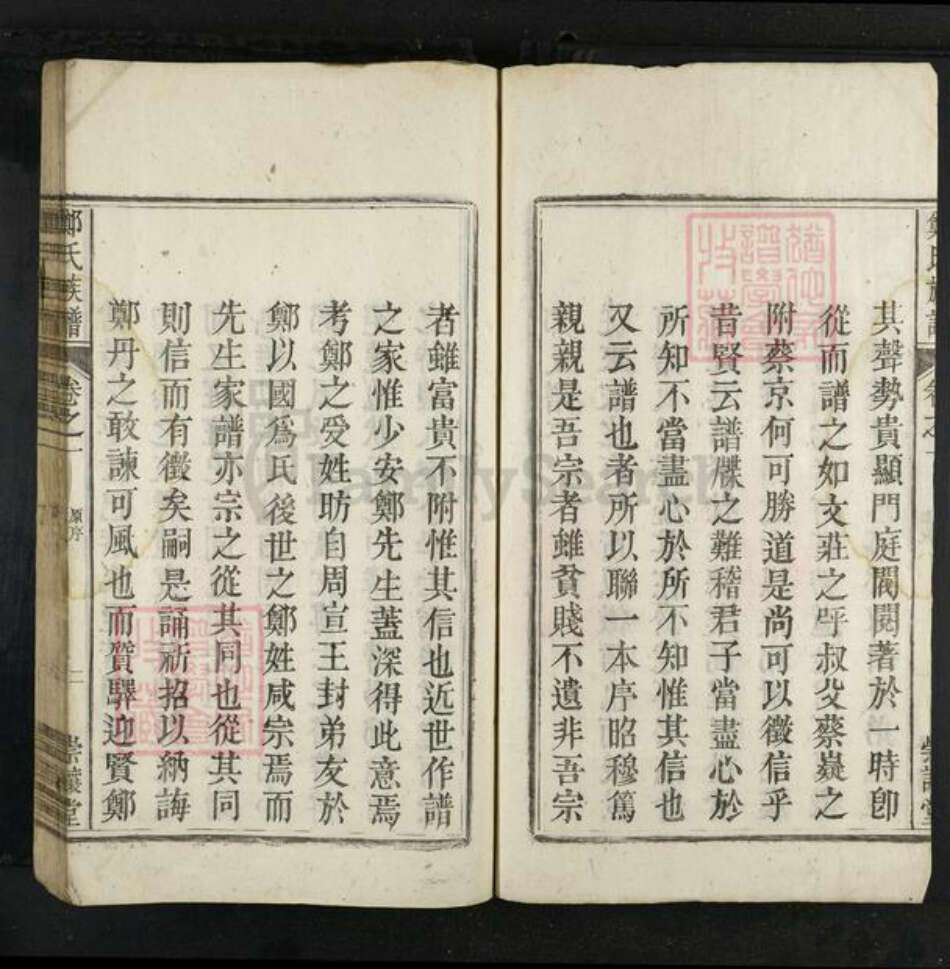 其聲勢貴顯門庭閥閱著於一時卽
從而譜之如文莊之呼叔父蔡嶷之
附蔡京何可勝道是尚可以徵信乎
昔賢云譜牒之難稽君子當盡心於
所知不當盡心於所不知惟其信也
又云譜也者所以聯一本序昭穆篤
親親是吾宗者雖貧賤不遺非吾宗
者雖富貴不附惟其信也近世作譜
之家惟少安鄭先生蓋深得此意焉
考鄭之受姓昉自周宣王封弟友於
鄭以國爲氏後世之鄭姓咸宗焉而
先生家譜亦宗之從其同也從其同
則信而有徵矣嗣是誦祈招以納誨
鄭丹之敢諫可風也而質驛迎賢鄭
鄭氏族譜
卷之一
原序
一
崇讓堂
FamilySearch